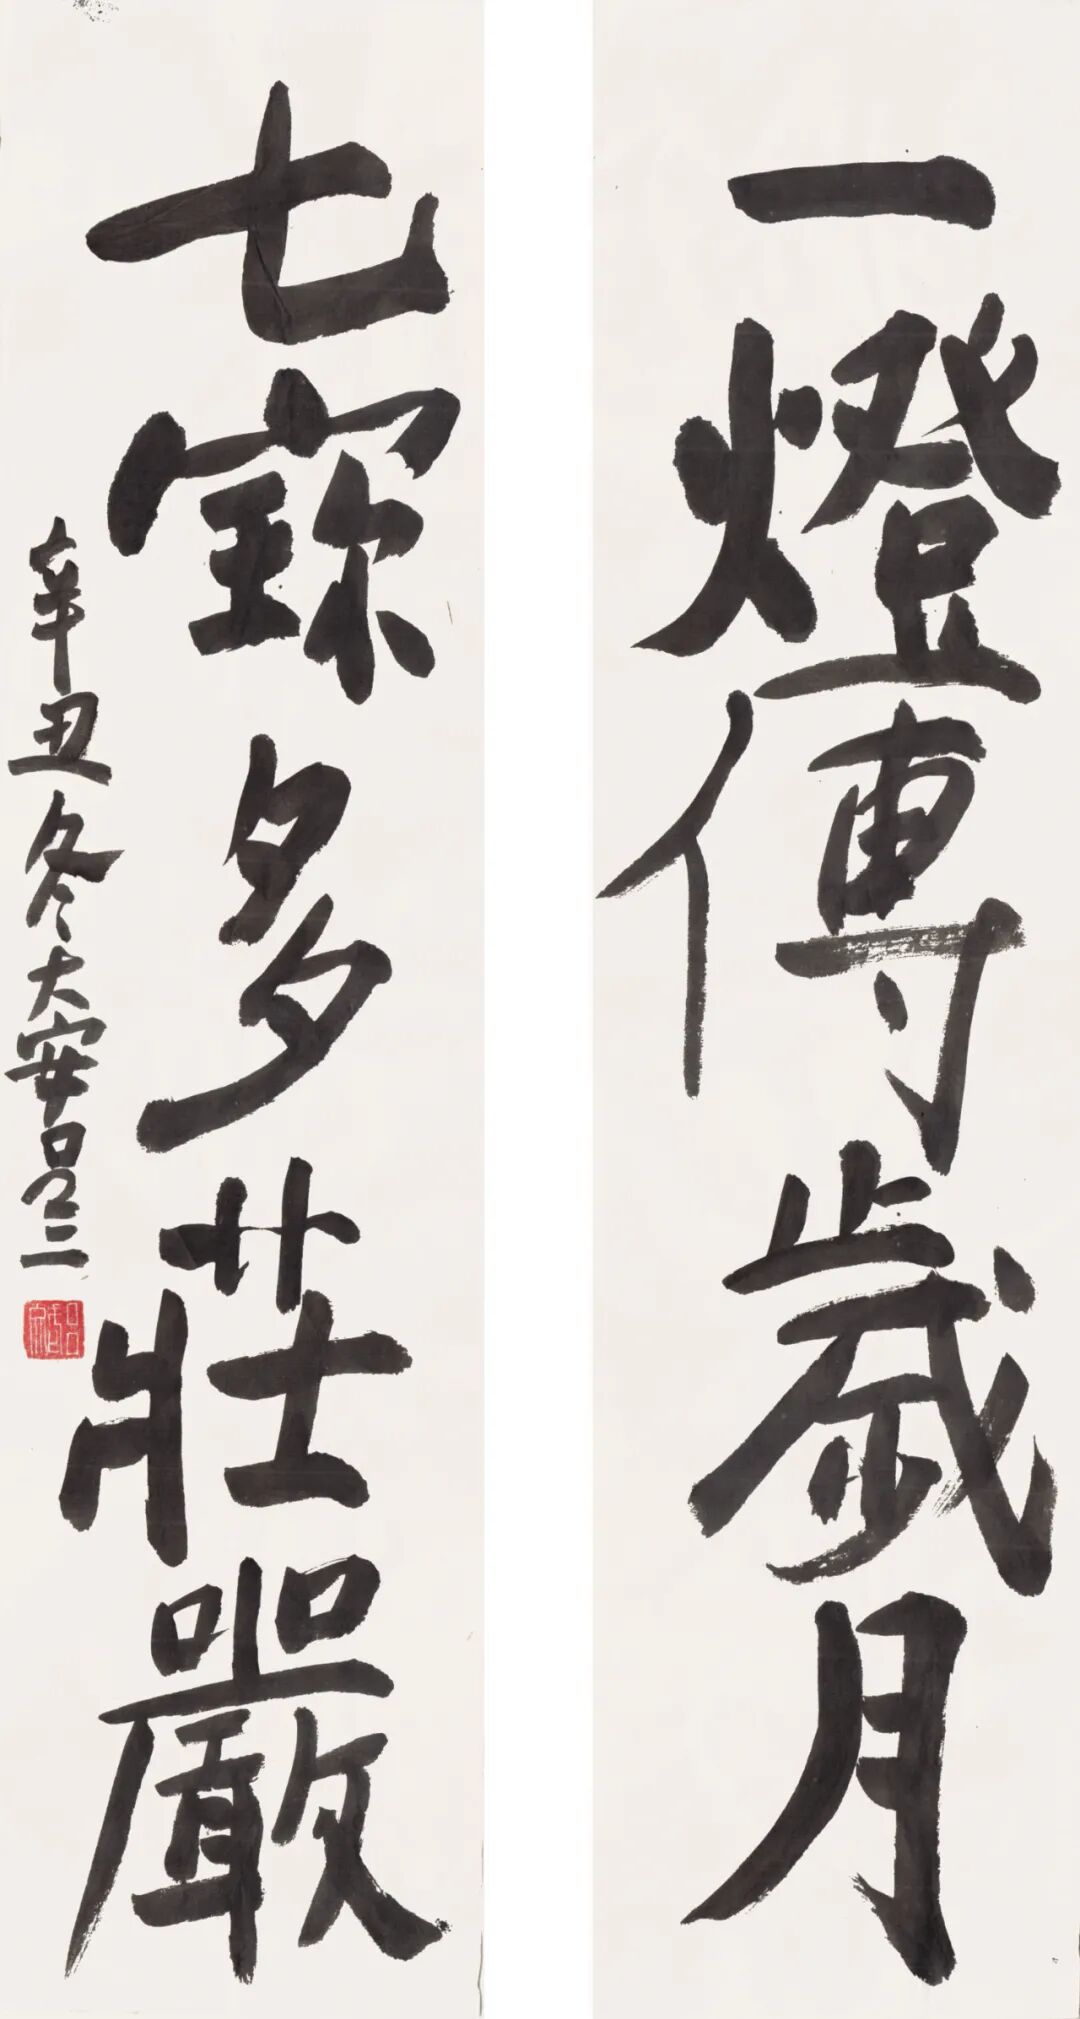 一燈傳歲月
七寶多莊嚴
辛丑冬大安呂三